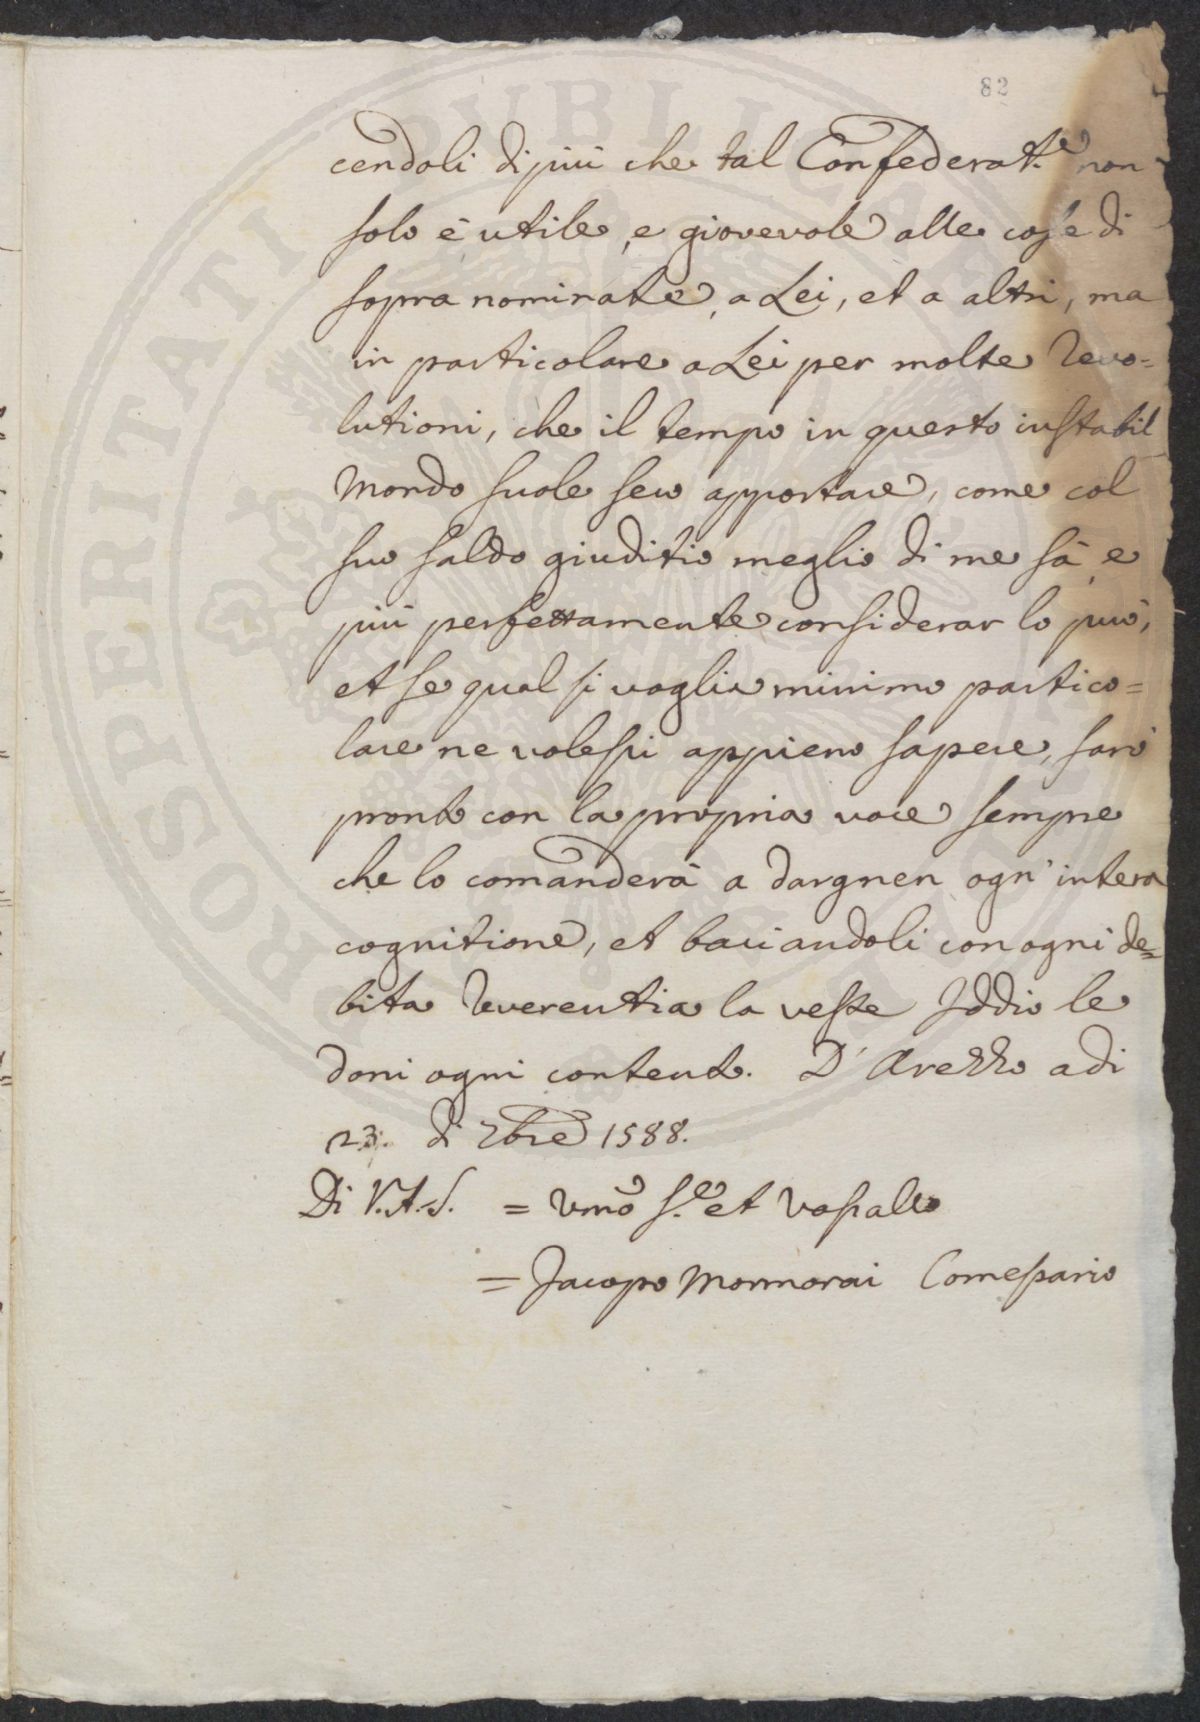 82
cendoli di più che tal Confederat.e non
solo è utile, e giovevole alle cose di
sopra nominate, a Lei, et a altri, ma
in particolare a Lei per molte revo=
lutioni, che il tempo in questo instabil
Mondo suole seco apportare, come col
suo saldo giuditio meglio di me sà e
più perfettamente considerar lo può,
et se qual si voglia minimo partico=
lare ne volessi appieno sapere, sarò
pronto con la propria voce sempre
che lo comanderà a dargnen ogn' intera
cognitione, et baciandoli con ogni de=
bita reverentia la veste Iddio le
doni ogni contento. D' Arezzo adi
23. di Xbre 1588.
Di V.A.S. = Umo S.e et Vassallo
= Jacopo Mormorai Comessario
PVBLICAE PROSPERITATI